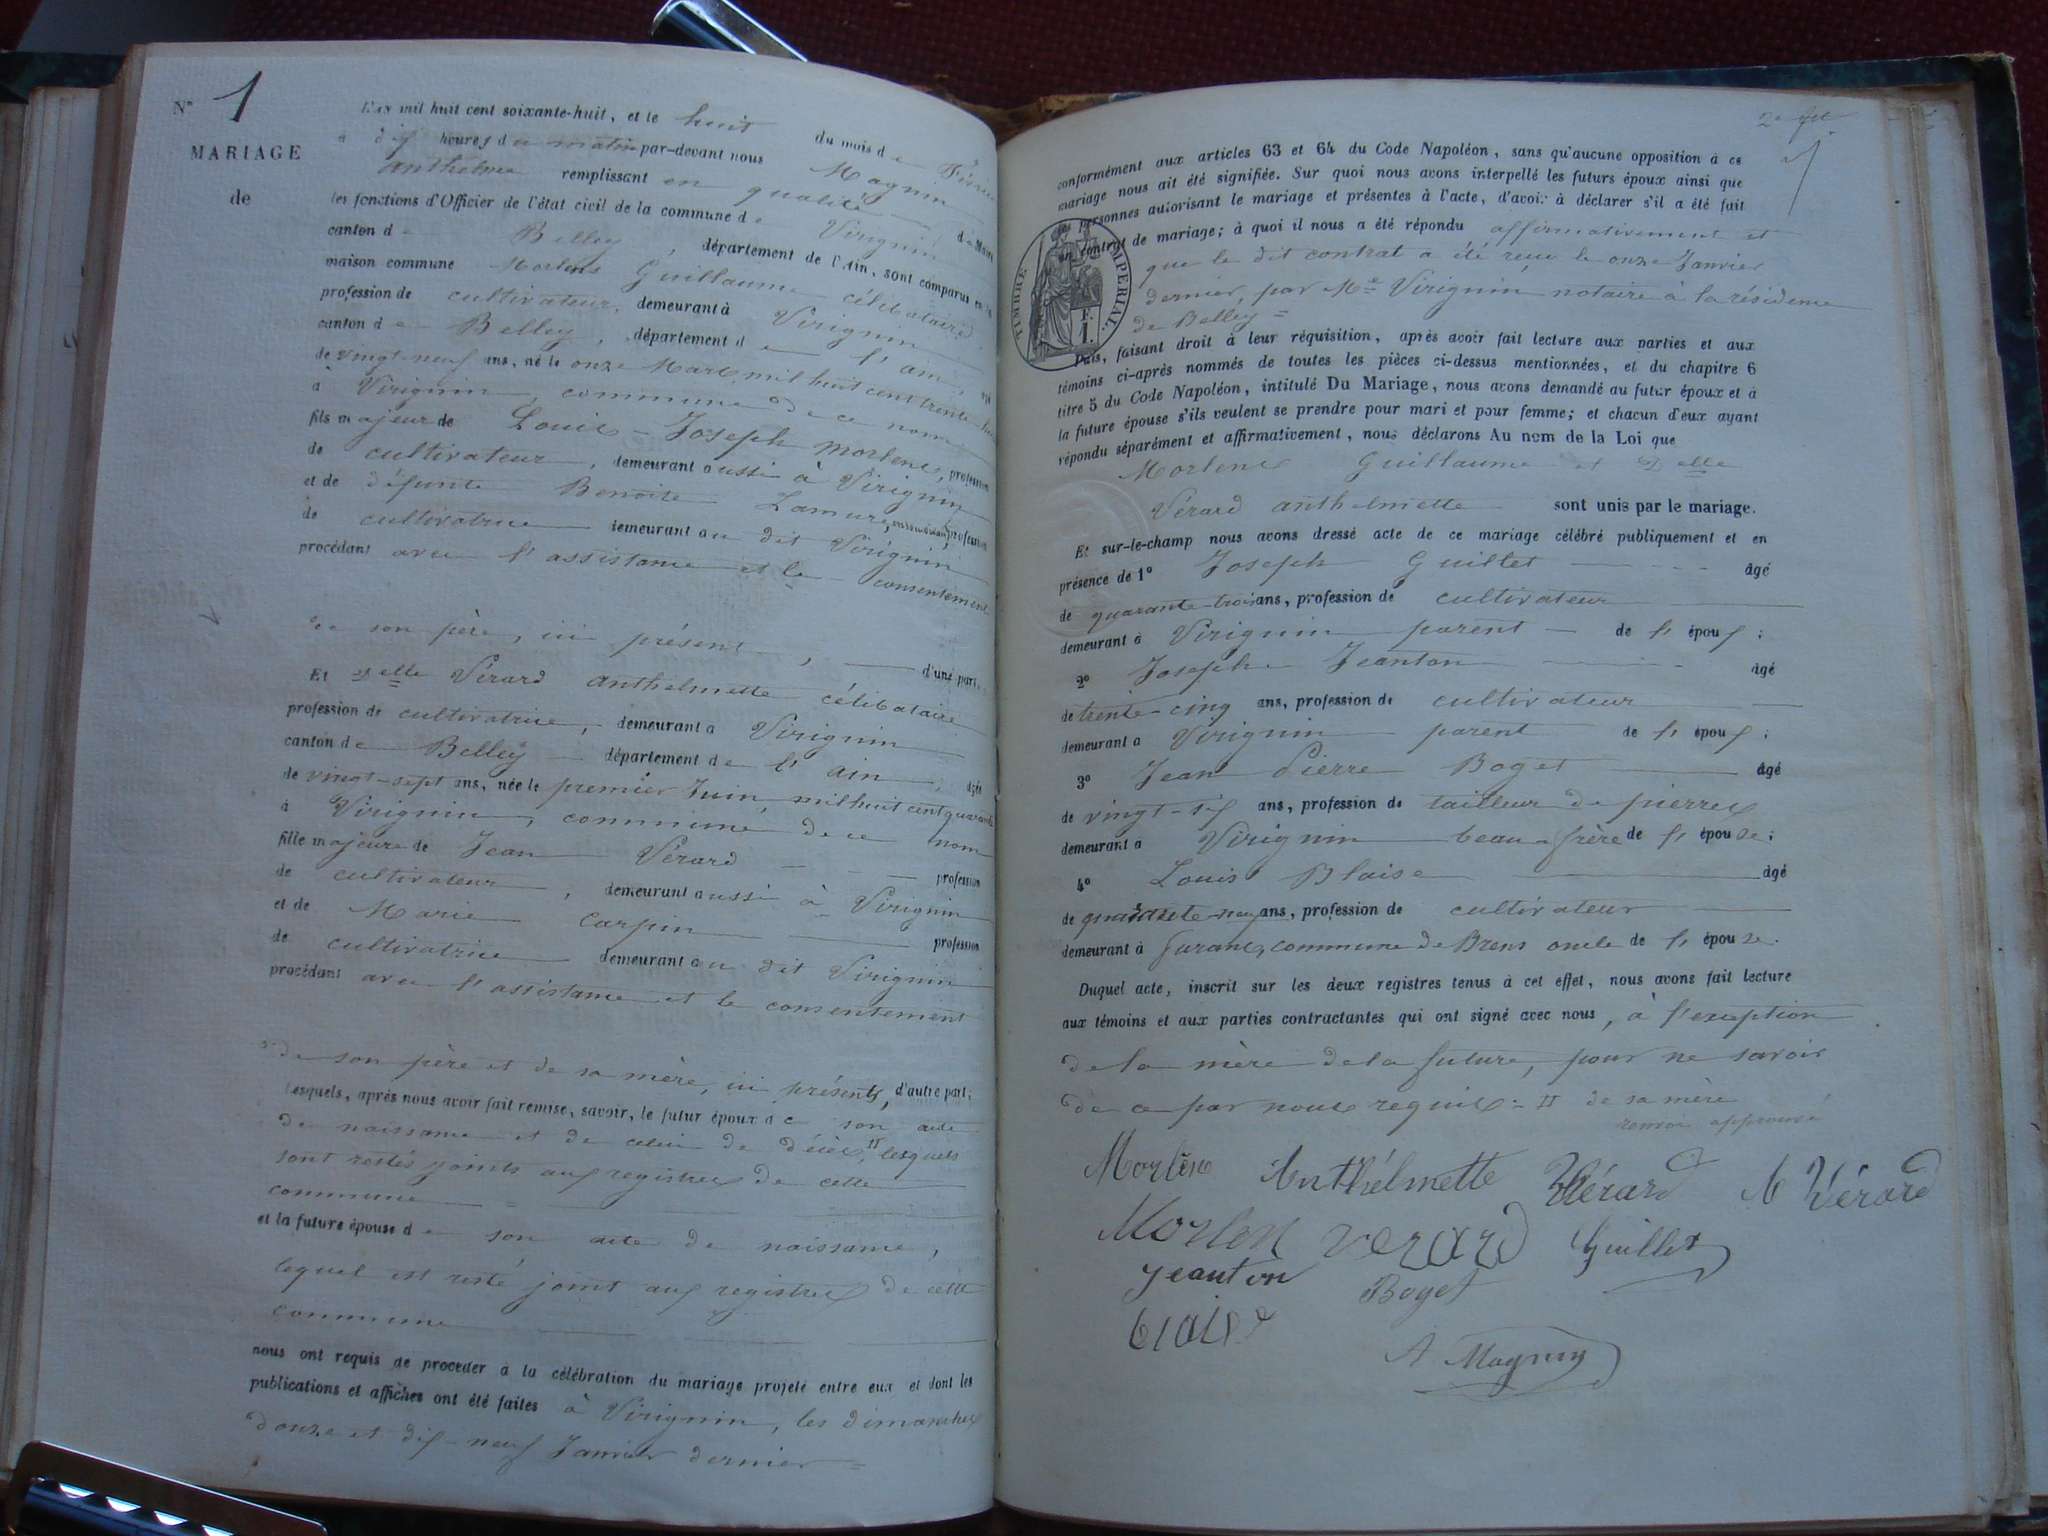 N° 1
MARIAGE
de
L'AN mil huit cent soixante-huit, et le huit du mois de Février
à dix heures du matin par-devant nous Magnin
Anthelme remplissant en qualité de Maire
les fonctions d'Officier de l'état civil de la commune de Virignin
canton de Belley, département de l'Ain, sont comparus en la
maison commune Morlens Guillaume célibataire
profession de cultivateur, demeurant à Virignin
canton de Belley, département de l'ain, agé
de vingt-neuf ans, né le onze Mars mil huit cent trente-huit
à Virignin, commune de ce nom
fils majeur de Louis-Joseph Morlens, profession
de cultivateur, demeurant aussi à Virignin
et de défunte Benoite Lamure, profession
de cultivatrice demeurant au dit Virignin
procédant avec l'assistance et le consentement
de son père, ici présent, d'une part.
Et Delle Vérard anthelmette célibataire
profession de cultivatrice, demeurant à Virignin
canton de Belley département de l'ain, agée
de vingt-sept ans, née le premier Juin, mil huit cent quarante
à Virignin, commune de ce nom
fille majeure de Jean Vérard profession
de cultivateur, demeurant aussi à Virignin
et de Marie Carpin profession
de cultivatrice demeurant au dit Virignin
procédant avec l'assistance et le consentement
de son père et de sa mère, ici présents, d'autre part;
Lesquels, après nous avoir fait remise, savoir, le futur époux de son acte
de naissance et de celui de décès, II lesquels
sont restés joints aux registres de cette
commune
et la future épouse de son acte de naissance,
lequel est resté joint aux registres de cette
commune
nous ont requis de procéder à la célébration du mariage projeté entre eux et dont les
publications et affiches ont été faites à Virignin, les dimanches
douze et dix-neuf Janvier dernier =
2e fet
conformément aux articles 63 et 64 du Code Napoléon, sans qu'aucune opposition à ce
mariage nous ait été signifiée. Sur quoi nous avons interpellé les futurs époux ainsi que
les personnes autorisant le mariage et présentes à l'acte, d'avoir à déclarer s'il a été fait
un contrat de mariage; à quoi il nous a été répondu affirmativement et
que le dit contrat a été reçu le onze Janvier
dernier, par Me Virignin, notaire à la résidence
de Belley =
TIMBRE IMPERIAL.
F.
1.
Puis, faisant droit à leur réquisition, après avoir fait lecture aux parties et aux
témoins ci-après nommés de toutes les pièces ci-dessus mentionnées, et du chapitre 6
titre 5 du Code Napoléon, intitulé Du Mariage, nous avons demandé au futur époux et à
la future épouse s'ils veulent se prendre pour mari et pour femme; et chacun d'eux ayant
répondu séparément et affirmativement, nous déclarons Au nom de la Loi que
Morlens Guillaume et Delle
Vérard anthelmette sont unis par le mariage.
Et sur-le-champ nous avons dressé acte de ce mariage célébré publiquement et en
présence de 1° Joseph Guillet âgé
de quarante-trois ans, profession de cultivateur
demeurant à Virignin parent de l'époux;
2° Joseph Jeanton âgé
de trente-cinq ans, profession de cultivateur
demeurant à Virignin parent de l'époux;
3° Jean Pierre Boget âgé
de vingt-six ans, profession de tailleur de pierres
demeurant à Virignin beau-frère de l'épouse;
4° Louis Blaise âgé
de quarante-neuf ans, profession de cultivateur
demeurant à furans, commune de Brens oncle de l'épouse.
Duquel acte, inscrit sur les deux registres tenus à cet effet, nous avons fait lecture
aux témoins et aux parties contractantes qui ont signé avec nous, à l'exception
de la mère de la future, pour ne savoir
de ce par nous requis = II de sa mère
renvoi approuvé
Morlens Anthélmette Vérard A Vérard
Morlen verard Guillet
jeanton Boget
blaise
A Magnin